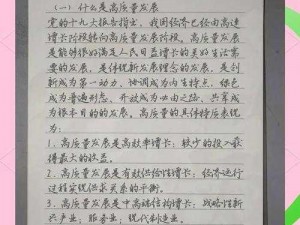 (一) 什么是高质量发展
党的十九大报告指出,我国经济已经由高速
增长阶段转向高质量发展阶段。高质量发展
是能够很好满足人民日益增长的美好生活需
要的发展,是体现新发展理念的发展,是创
新成为第一动力、协调成为内生特点、绿色
成为普遍形态、开放成为必由之路、共享成
为根本目的的发展。高质量的具体特质表现
为:
1.高质量发展是高效率增长:较少的投入获
得最大的收益。
2.高质量发展是有效供给性增长:经济运行
过程实现供求关系的平衡。
3.高质量发展是中高端结构增长:战略性新
兴产业;服务业;现代制造业。